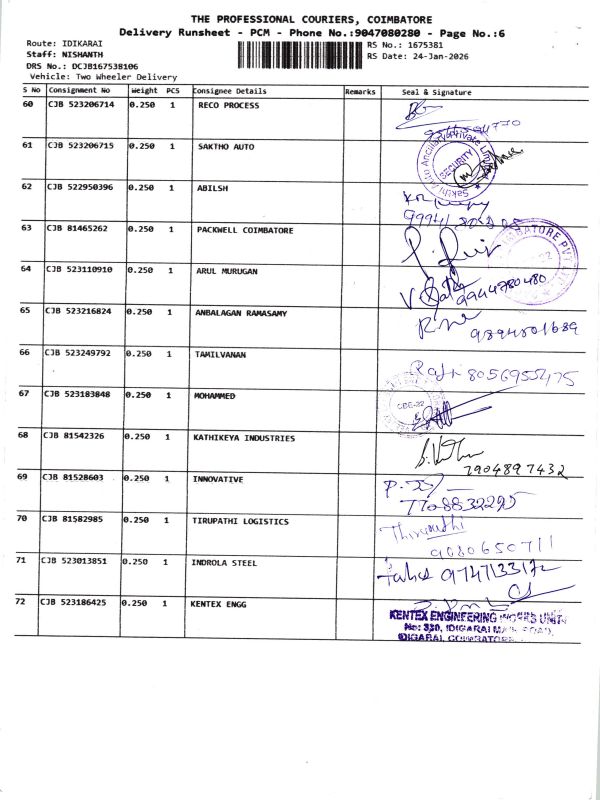 THE PROFESSIONAL COURIERS, COIMBATORE
Delivery Runsheet - PCM - Phone No.:9047080280 - Page No.:6
Route: IDIKARAI
RS No.: 1675381
Staff: NISHANTH
RS Date: 24-Jan-2026
DRS No.: DCJB167538106
Vehicle: Two Wheeler Delivery
S No Consignment No Weight PCS Consignee Details Remarks Seal & Signature
60 CJB 523206714 0.250 1 RECO PROCESS
61 CJB 523206715 0.250 1 SAKTHO AUTO
Sakthi Auto Ancillary Private Limited
SECURITY
62 CJB 522950396 0.250 1 ABILSH
63 CJB 81465262 0.250 1 PACKWELL COIMBATORE
64 CJB 523110910 0.250 1 ARUL MURUGAN
9944780480
65 CJB 523216824 0.250 1 ANBALAGAN RAMASAMY
9894801689
66 CJB 523249792 0.250 1 TAMILVANAN
8056955475
67 CJB 523183848 0.250 1 MOHAMMED
CBE-22
68 CJB 81542326 0.250 1 KATHIKEYA INDUSTRIES
7904897432
69 CJB 81528603 0.250 1 INNOVATIVE
7708832295
70 CJB 81582985 0.250 1 TIRUPATHI LOGISTICS
Thirupathi
9080650711
71 CJB 523013851 0.250 1 INDROLA STEEL
72 CJB 523186425 0.250 1 KENTEX ENGG
KENTEX ENGINEERING WORKS UNIT
No: 330, IDIGARAI MAIN ROAD,
IDIGARAI, COIMBATORE